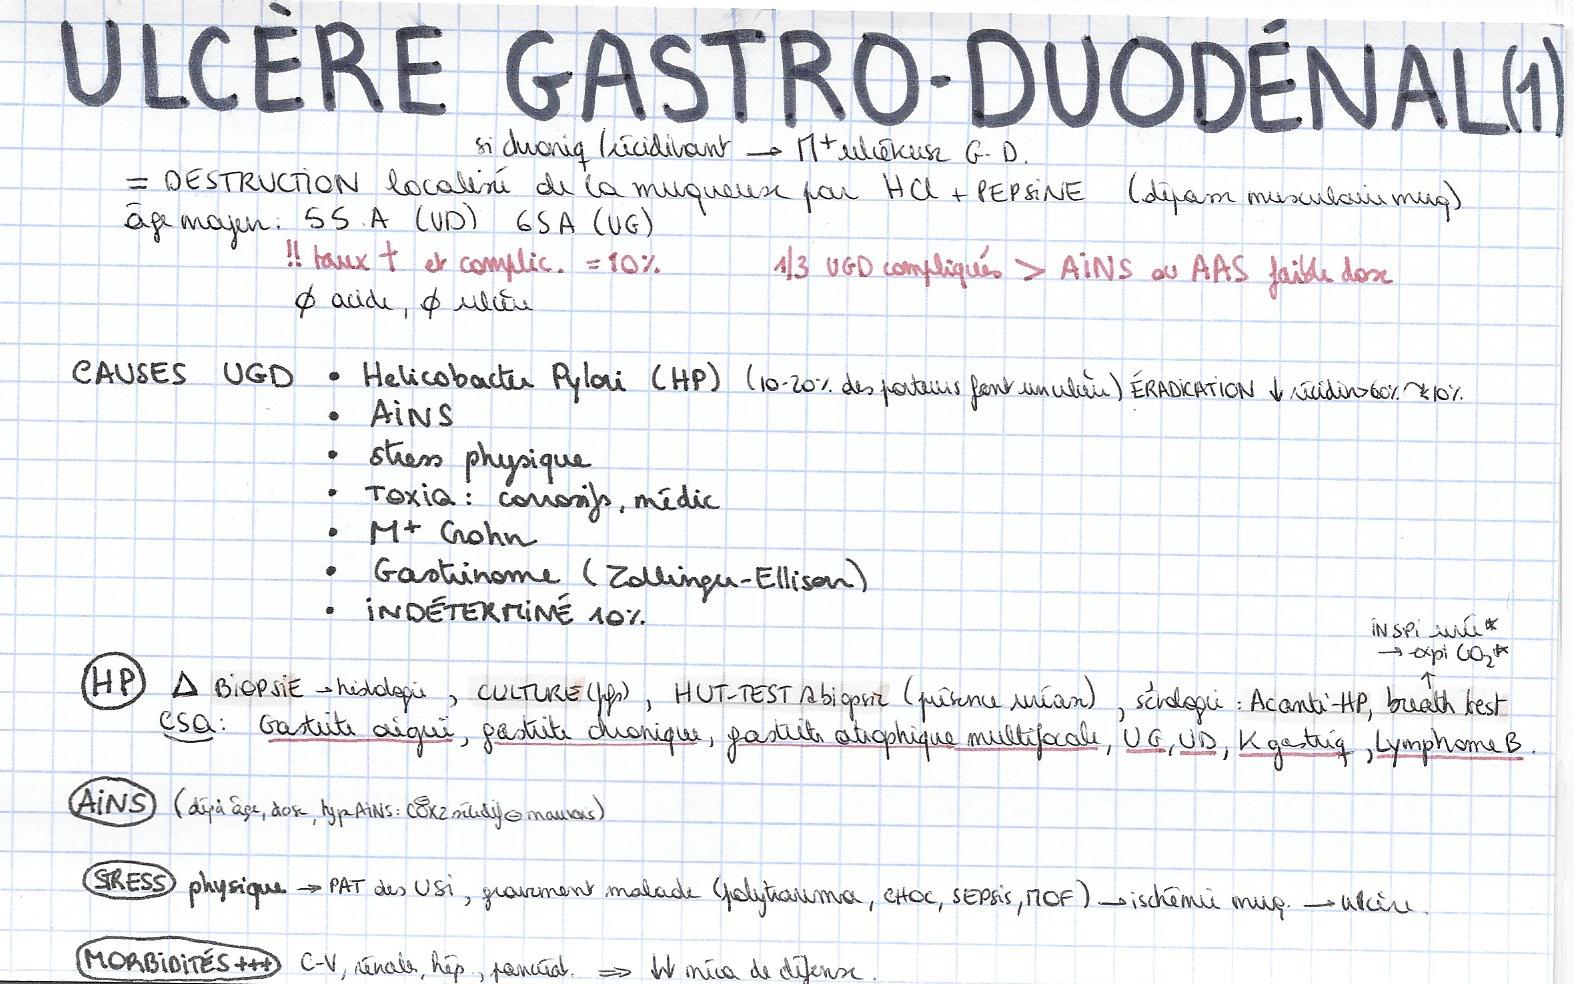 ULCÈRE GASTRO-DUODÉNAL (1)
si chroniq/récidivant → M+ ulcéreuse G-D.
= DESTRUCTION localisé de la muqueuse par HCl + PEPSiNE (dépasse musculaire muq)
âge moyen: 55 A (UD) 65A (UG)
!! taux † et complic. = 10% 1/3 UGD compliqués > AiNS ou AAS faible dose
Ø acide, Ø ulcère
CAUSES UGD • Helicobacter Pylori (HP) (10-20% des porteurs font un ulcère) ÉRADICATION ↓ récidive 60% 10%
• AiNS
• stress physique
• Toxiq: corrosifs, médic
• M+ Crohn
• Gastrinome (Zollinger-Ellison)
• iNDÉTERMiNÉ 10%
iNSPi urée*
→ expi CO2*
↑
HP Δ BiOPSiE → histologie, CULTURE, HUT-TEST biopsie (présence uréase), sérologie: Ac anti-HP, breath test
CSQ: Gastrite aiguë, gastrite chronique, gastrite atrophique multifocale, UG, UD, K gastriq, Lymphome B.
AiNS (âge, dose, type AiNS: COX2 sélectif ⊖ mauvais)
STRESS physique → PAT des USi, gravement malade (polytrauma, CHOC, SEPSiS, MOF) → ischémie muq. → ulcère.
MORBiDiTÉS +++ C-V, rénale, hép, pancréat. ⇒ ↓↓ méca de défense.